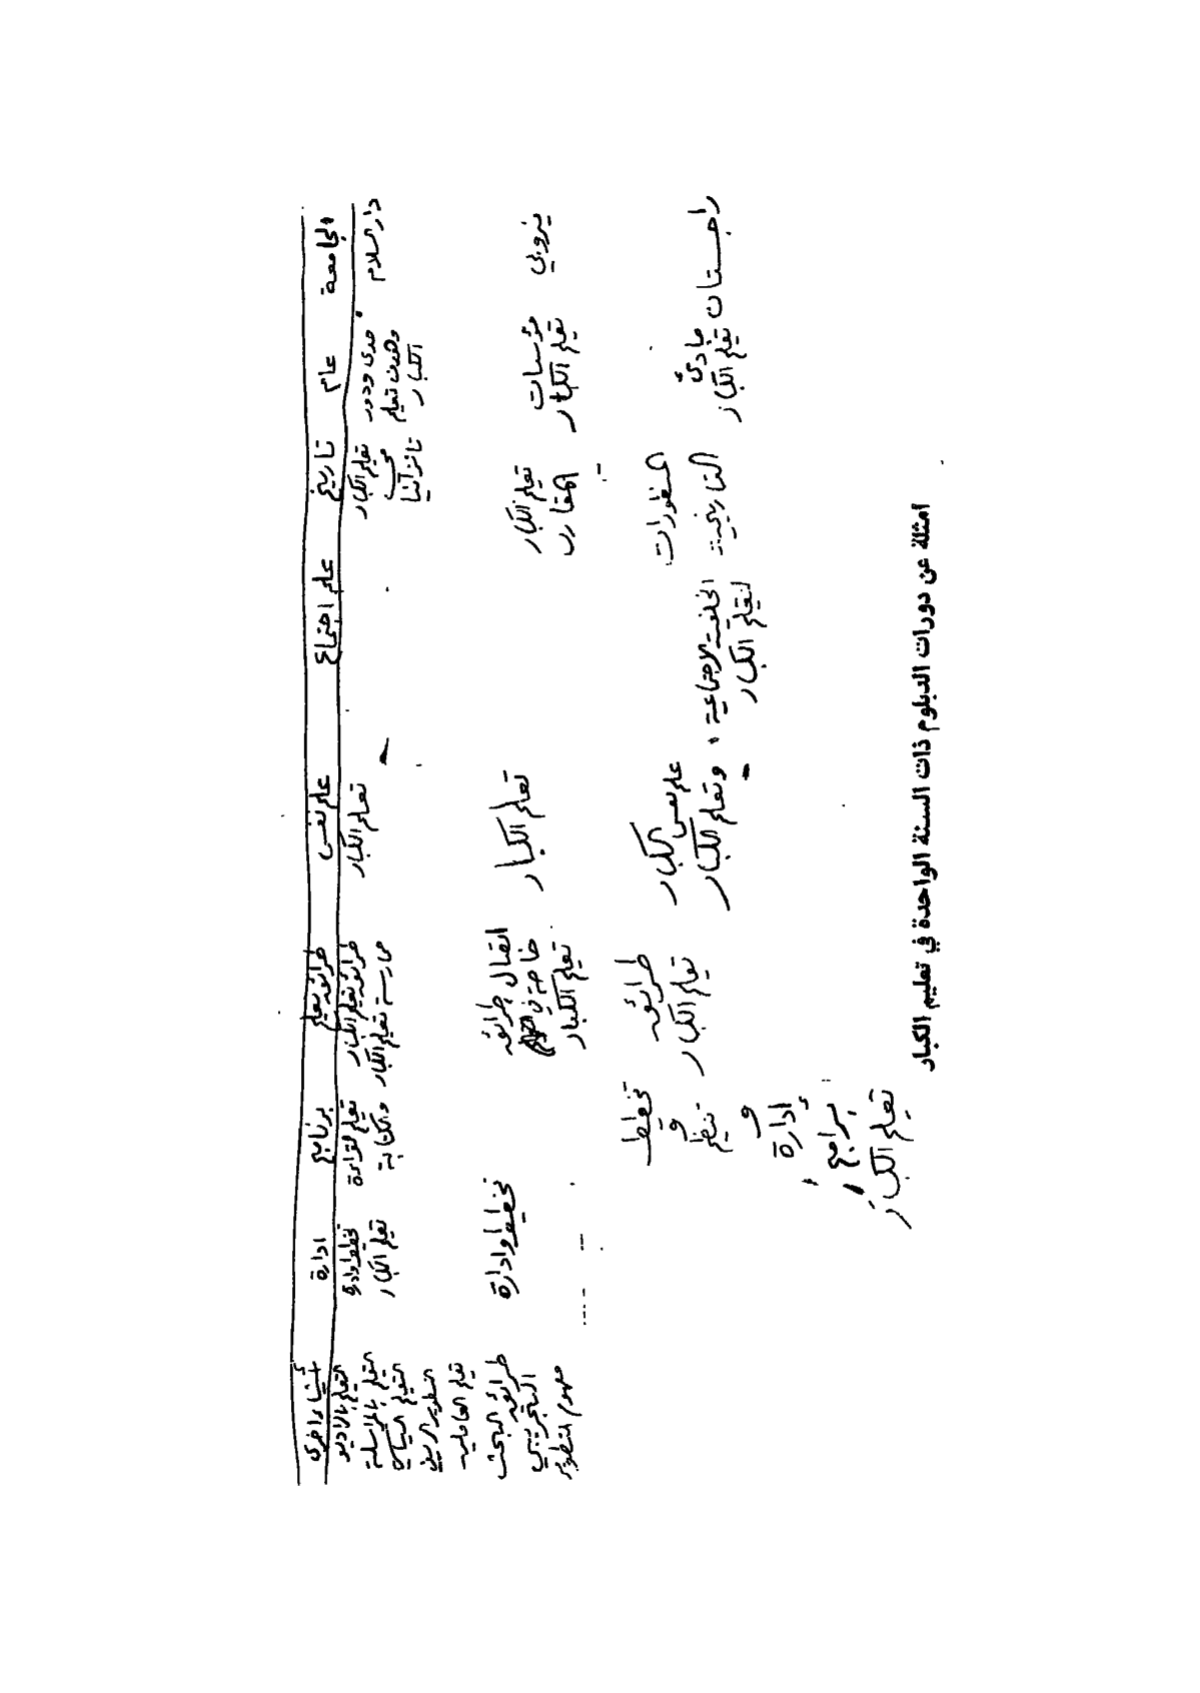 الجامعة
عام
تاريخ
علم اجتماع
علم نفس
طرائق تعليم
برنامج
ادارة
أشياء اخرى
دار السلام
مدى ودور
وهدف تعليم
الكبار
تعليم الكبار
في
تانزانيا
تعلم الكبار
طرائق تعليم الكبار
ممارسة تعليم الكبار
تعليم القراءة
والكتابة
تخطيط وادارة
تعليم الكبار
التعليم بالراديو
التعليم بالمراسلة
التعليم السياسي
التطوير الريفي
تعليم العاملين
نيروبي
مؤسسات
تعليم الكبار
تعليم الكبار
المقارن
تعلم الكبار
اتصال طرائق
خاصة في
تعليم الكبار
تخطيط وادارة
طرائق البحث
التجريبي
مفهوم التطوير
راجستان
مبادئ
تعليم الكبار
المنظورات
التاريخية
الخلفية الاجتماعية
لتعليم الكبار
علم نفس الكبار
وتعلم الكبار
طرائق
تعليم الكبار
تخطيط
و
تنظيم
و
إدارة
برامج
تعليم الكبار
امثلة عن دورات الدبلوم ذات السنة الواحدة في تعليم الكبار